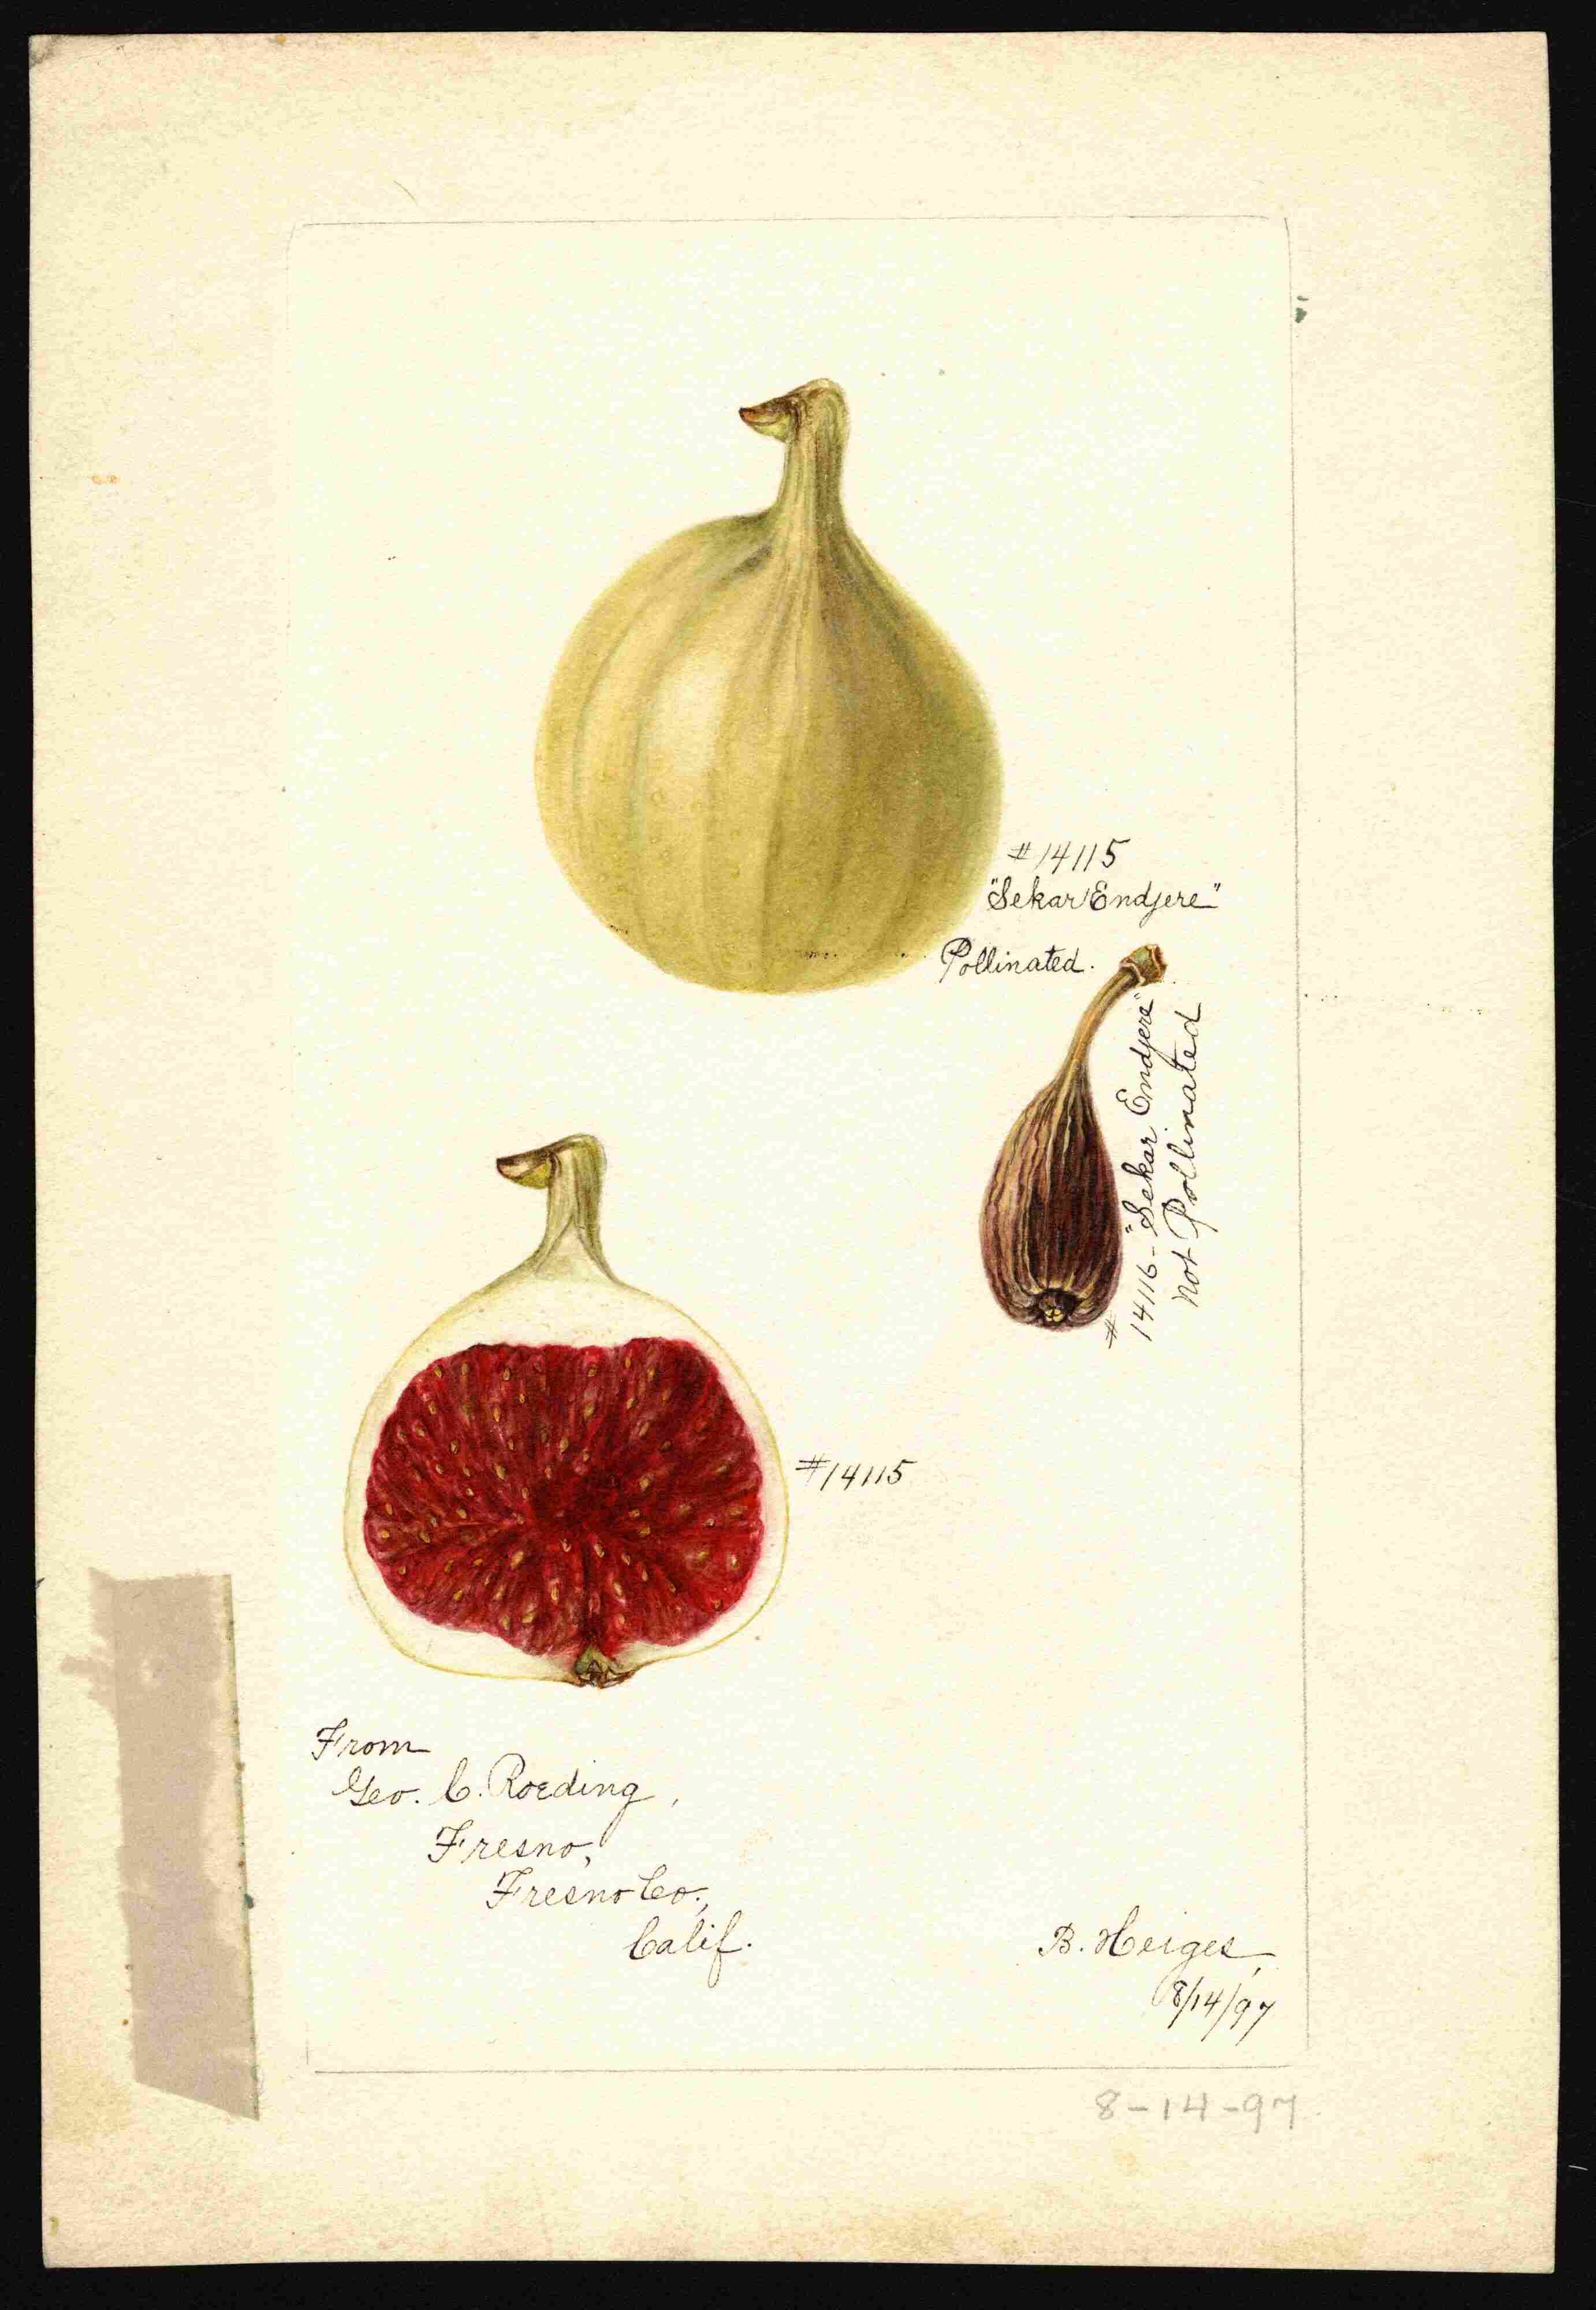 #14115
"Sekar Endjere"
Pollinated.
#14116-"Sekar Endjere"
not Pollinated
#14115
From
Geo. C. Roeding,
Fresno,
Fresno Co.,
Calif.
B. Heiges,
8/14/97
8-14-97